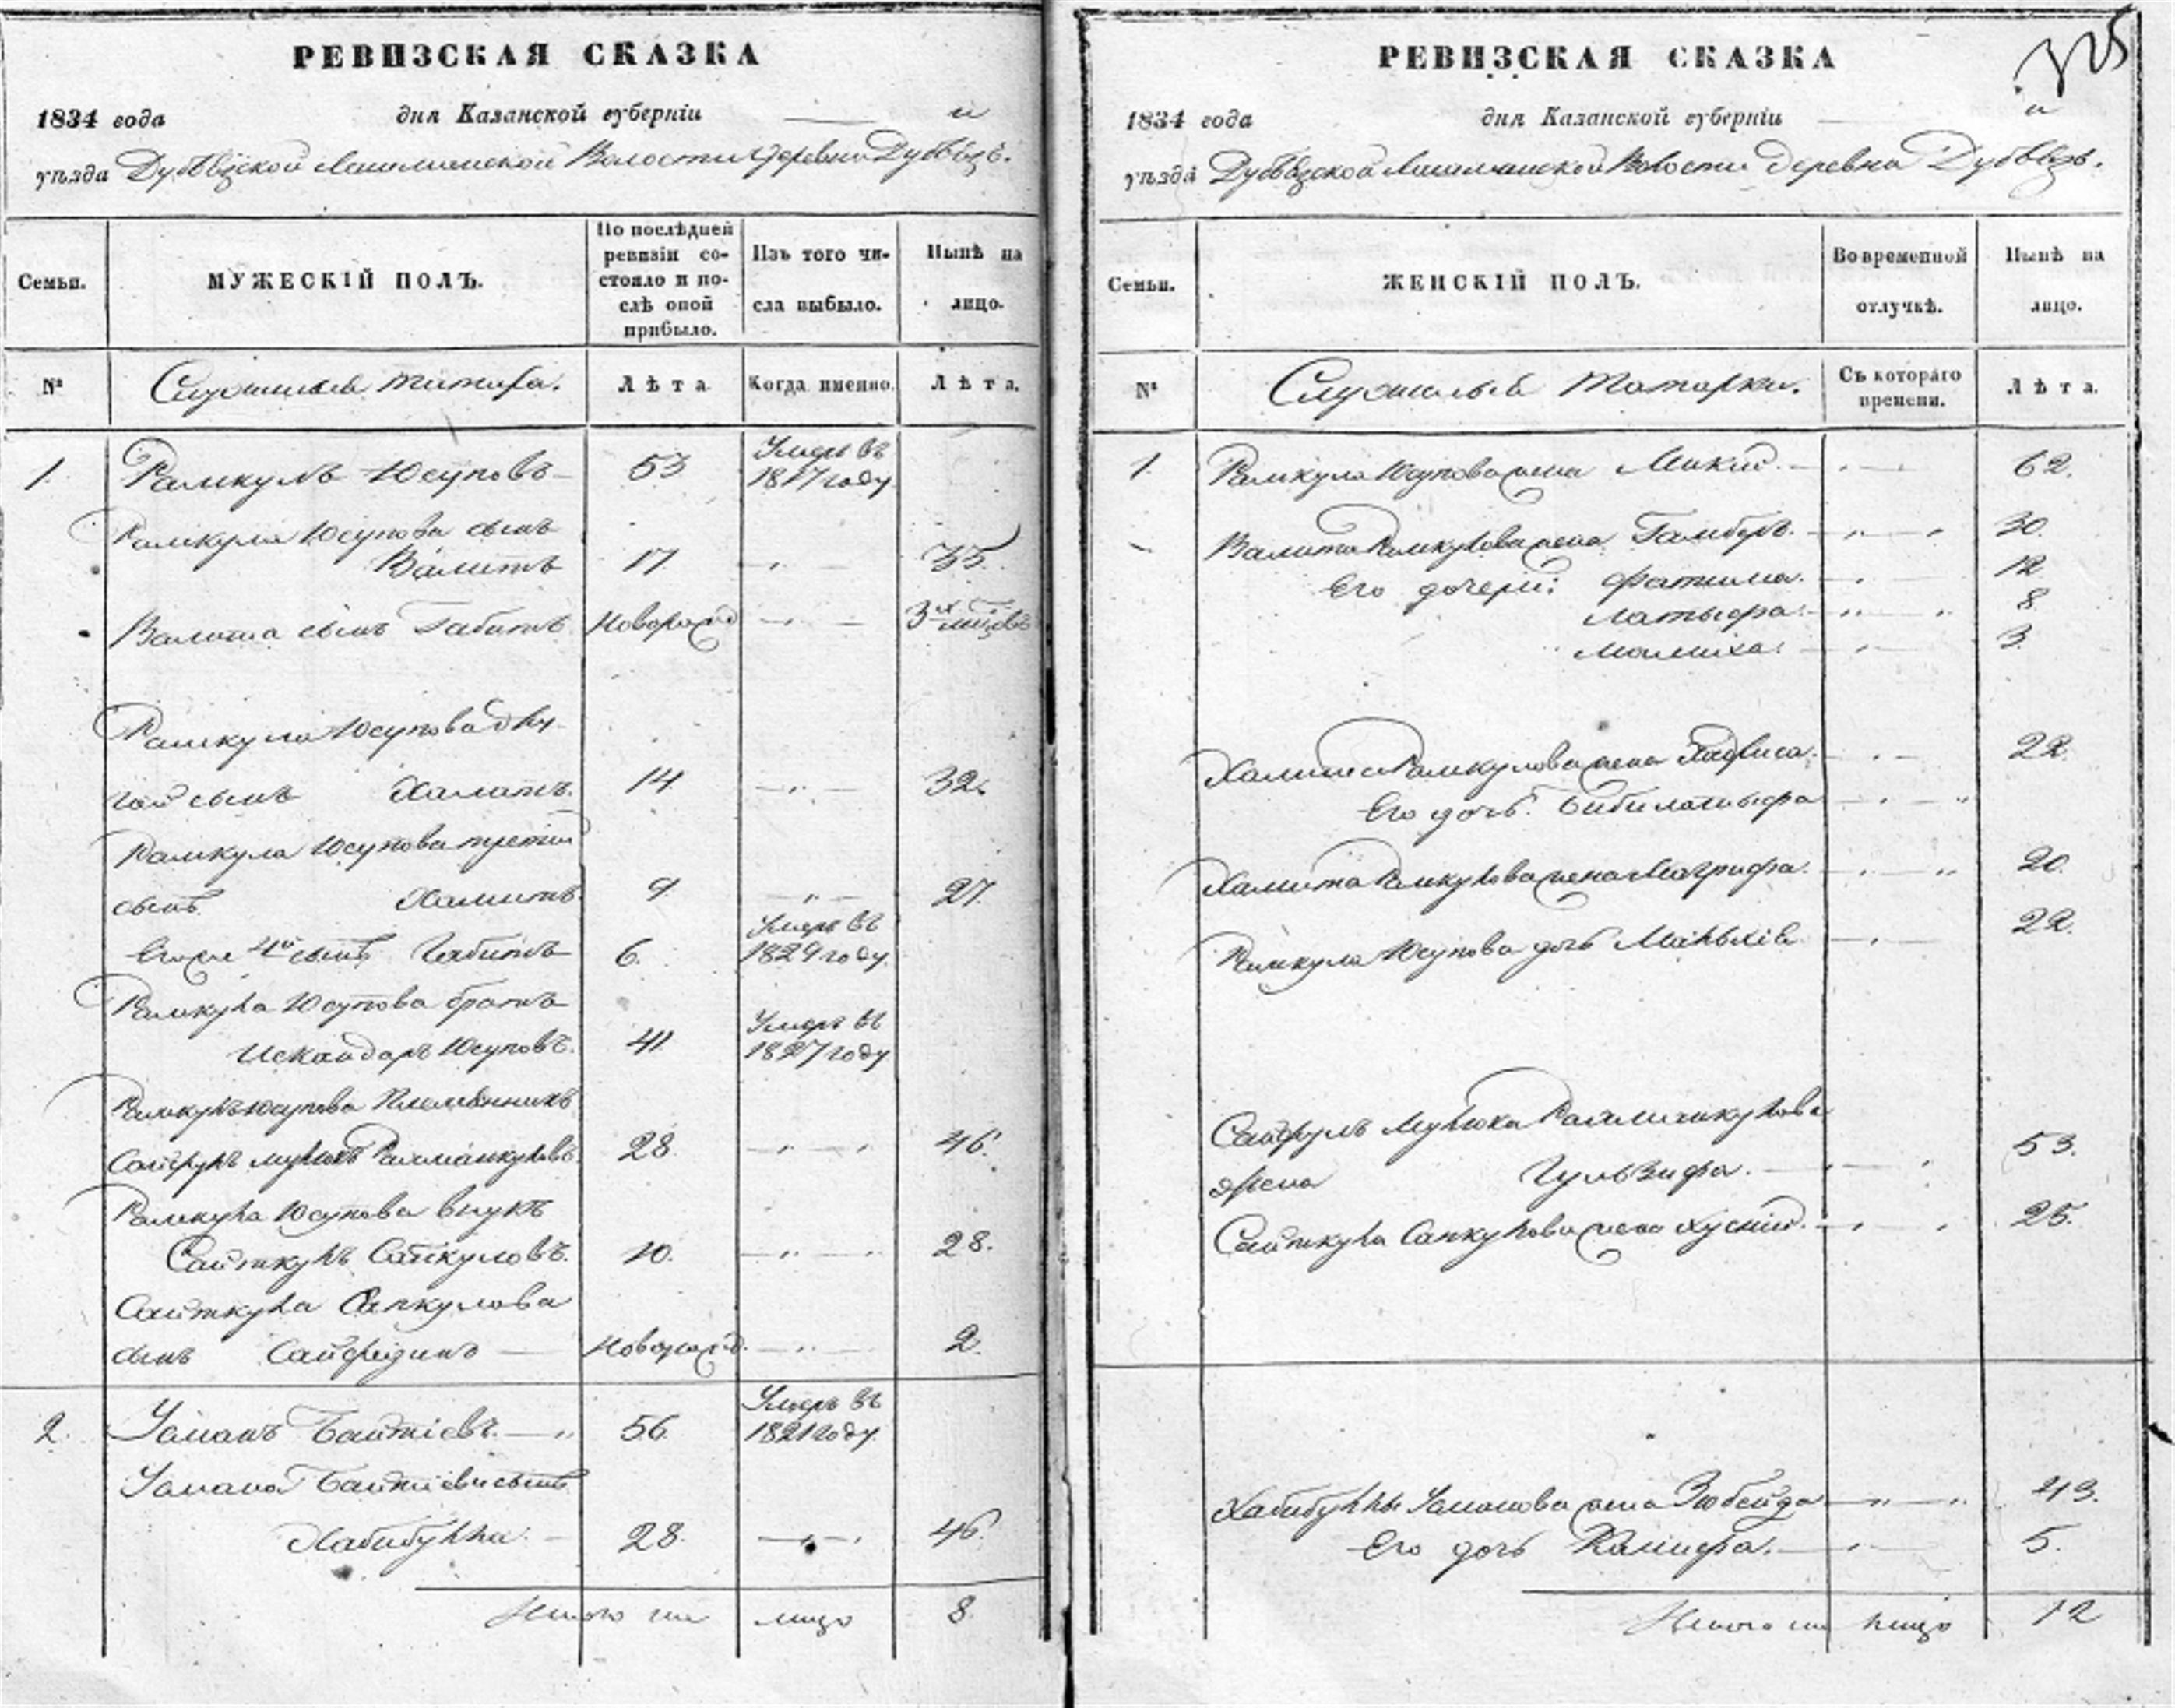 РЕВИЗСКАЯ СКАЗКА
1834 года дня Казанской губерніи и
уѣзда Волости деревни
Семьи.
МУЖЕСКІЙ ПОЛЪ.
По послѣдней ревизіи состояло и послѣ оной прибыло.
Изъ того числа выбыло.
Нынѣ на лицо.
№
Служилыя татара.
Лѣта
Когда именно.
Лѣта.
1. Рамкулъ Юсуповъ 53 Умеръ въ 1817 году
Рамкула Юсупова сынъ
Валитъ 17 35.
Валита сынъ Габитъ новорожд 3х мѣсяцовъ
Рамкула Юсупова дру-
гой сынъ Халитъ. 14 32.
Рамкула Юсупова третій
сынъ Хамитъ 9. 27.
Его же 4й сынъ Габитъ 6. Умеръ въ 1829 году
Рамкула Юсупова братъ
Искандаръ Юсуповъ. 41 Умеръ въ 1827 году
Рамкула Юсупова Племянникъ
28. 46.
Рамкула Юсупова внукъ
Саиткулъ Сапкуловъ. 10. 28.
Саиткула Сапкулова
сынъ новорожд. 2.
2. Усманъ 56. Умеръ въ 1821 году
Усмана сынъ
Хабибулла. 28. 46.
Итого на лицо 8.
325
РЕВИЗСКАЯ СКАЗКА
1834 года дня Казанской губерніи и
уѣзда Волости деревня
Семьи.
ЖЕНСКІЙ ПОЛЪ.
Во временной отлучкѣ.
Нынѣ на лицо.
№
Служилыя Татарки.
Съ котораго времени.
Лѣта.
1. Рамкула Юсупова жена 62.
Валита Рамкулова жена 30.
Его дочери: Фатима. 12
Латыфа. 8
3.
Рамкулова жена Хадиса. 22.
Его дочь Бибилатыфа
Хамита Рамкулова жена Магруфа. 20.
Рамкула Юсупова дочь 22.
жена Гульзифа. 53.
Саиткула Сапкулова жена 25.
Хабибуллы Усманова жена Зюбейда 43.
Его дочь 5.
Итого на лицо 12